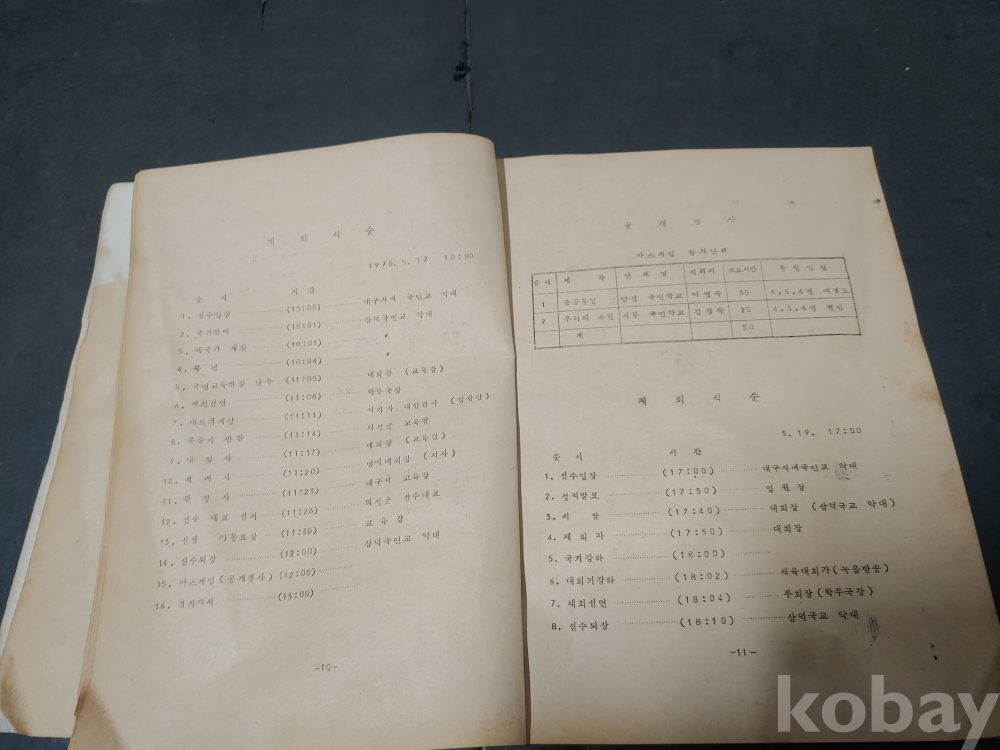 개 회 식 순
1970. 5. 17 10:00
순 서 시 간
1. 선수입장 (10:00) 대구시내 국민교 악대
2. 국기 (10:01) 삼덕국민교 악대
3. 애국가 제창 (10:01) 〃
4. 묵 념 (10:04) 〃
5. 국민교육헌장 낭독 (11:05) 대회장 (교육감)
6. 개회선언 (11:08) 학무국장
7. 대회기게양 (11:11)
8. 우승기 반환 (11:14) 의성군 교육청
9. 대 회 사 (11:17) 대회장 (교육감)
10. 격 려 사 (11:20) 명예대회장 (지사)
11. 환 영 사 (11:23) 대구시 교육장
12. 선수 대표 선서 (11:26) 의성군 선수대표
13. 선행 아동표창 (11:30) 교 육 감
14. 선수퇴장 (12:00) 삼덕국민교 악대
15. 마스게임 (공개행사) (12:00)
16. 경기개시 (13:00)
-10-
공 개 행 사
마스게임 참가단체
순서 제 목 단 체 명 지휘자 소요시간 동원인원
1 승공통일 달성 국민학교 이영숙 30 4,5,6년 여생도
2 우리의 소원 국민학교 김경숙 20 4,5,6년 전원
계 50
폐 회 식 순
5. 19. 17:00
순 서 시 간
1. 선수입장 (17:00) 대구시내국민교 악대
2. 성적발표 (17:30) 임 원 장
3. 시 상 (17:40) 대회장 (삼덕국교 악대)
4. 폐 회 사 (17:50) 대회장
5. 국기강하 (18:00)
6. 대회기강하 (18:02) 체육대회가 (녹음방송)
7. 폐회선언 (18:04) 부회장 (학무국장)
8. 선수퇴장 (18:10) 삼덕국교 악대
-11-
kobay